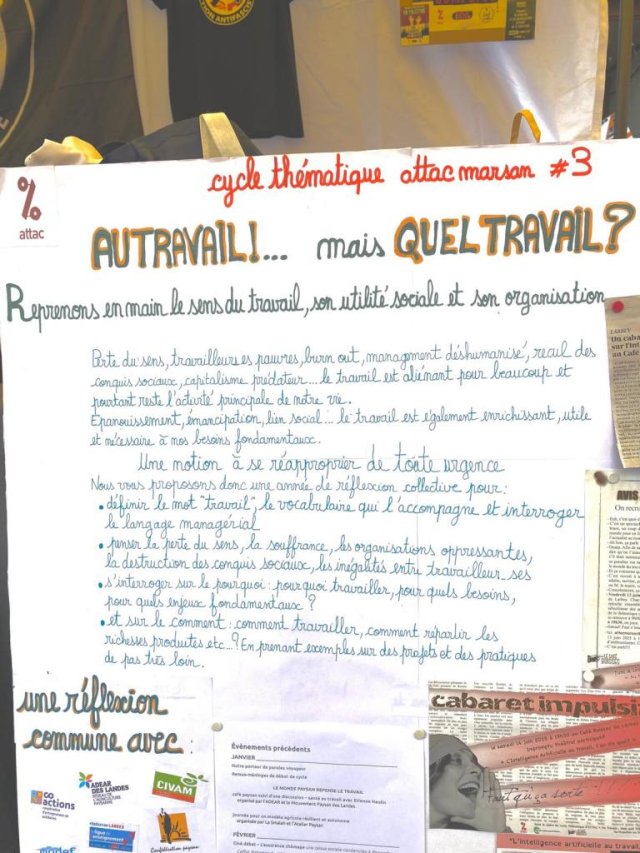 cycle thématique attac marsan #3
%
attac
AU TRAVAIL!... mais QUEL TRAVAIL?
Reprenons en main le sens du travail, son utilité sociale et son organisation
Perte du sens, travailleur es pauvres, burn out, management déshumanisé, recul des
conquis sociaux, capitalisme prédateur... le travail est aliénant pour beaucoup et
pourtant reste l'activité principale de notre vie.
Epanouissement, émancipation, lien social... le travail est également enrichissant, utile
et nécessaire à nos besoins fondamentaux.
Une motion à se réapproprier de toute urgence
Nous vous proposons donc une année de réflexion collective pour:
• définir le mot "travail", le vocabulaire qui l'accompagne et interroger
le langage managérial
• penser la perte du sens, la souffrance, les organisations oppressantes,
la destruction des conquis sociaux, les inégalités entre travailleur ses
• s'interroger sur le pourquoi : pourquoi travailler, pour quels besoins,
pour quels enjeux fondamentaux ?
• et sur le comment : comment travailler, comment repartir les
richesses produites etc...? En prenant exemples sur des projets et des pratiques
de pas très loin.
une réflexion
commune avec :
ADEAR
DES LANDES
CIVAM
co
actions
ligue de
enseignement
Confédération paysanne
Évènements précédents
JANVIER
Notre porteur de paroles voyageur
Remue-méninges de début de cycle
LE MONDE PAYSAN REPENSE LE TRAVAIL
café paysan suivi d'une discussion - santé au travail avec
organisé par l'ADEAR et le Mouvement Paysan des Landes
Journée pour un modèle agricole résilient et autonome
organisé par La Smalah et l'Atelier Paysan
FÉVRIER
AVIS
On recru
cabaret impulsi
"L'intelligence artificielle au travail